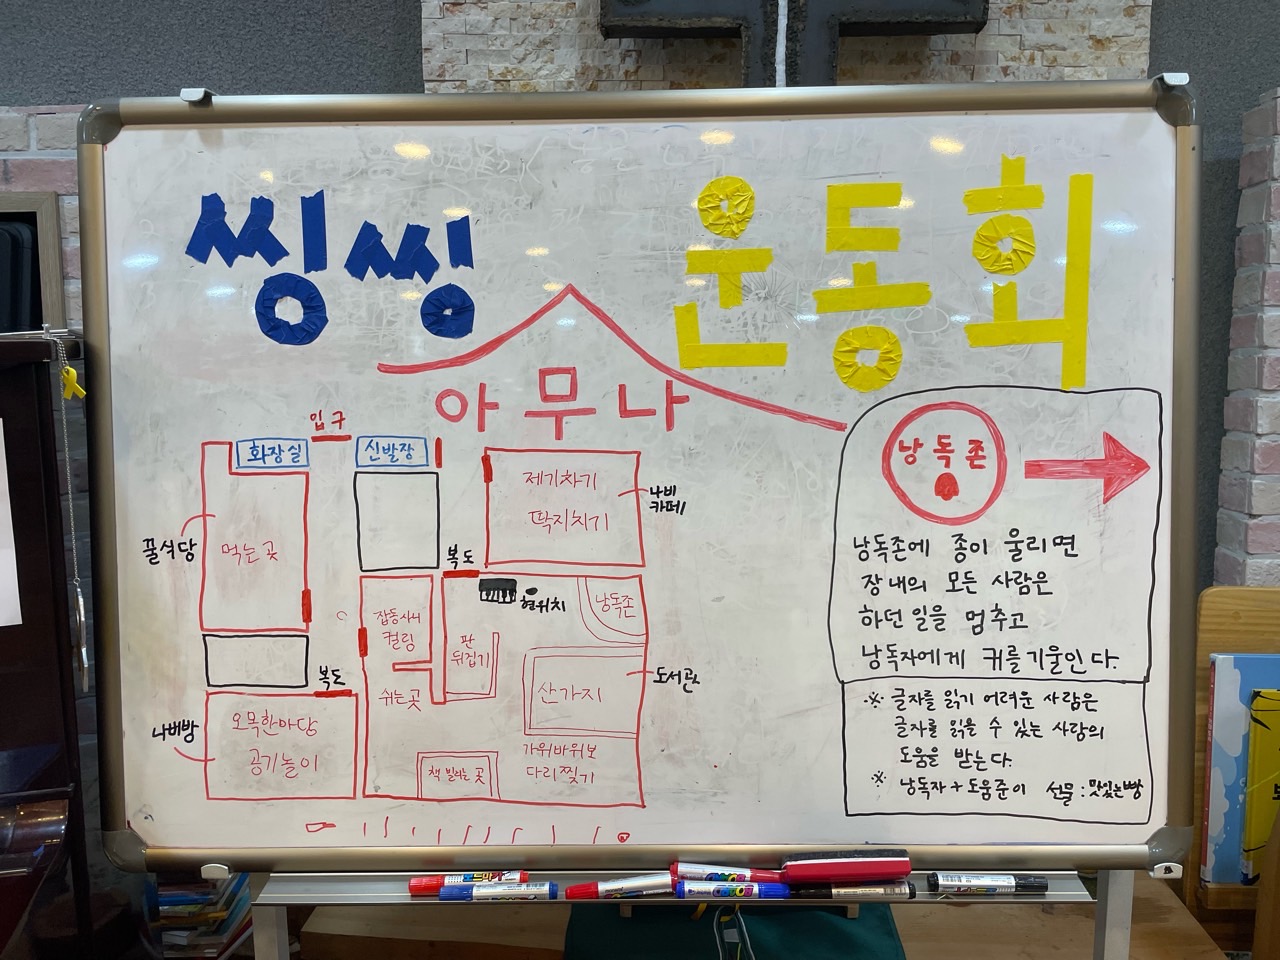 씽씽 운동회
아무나
입구
화장실
신발장
꿀식당
먹는 곳
제기차기
딱지치기
나비
카페
복도
현위치
낭독존
잡동사니
컬링
판
뒤집기
쉬는곳
산가지
도서관
복도
나배방
오목한마당
공기놀이
책 빌리는 곳
가위바위보
다리찢기
낭독존
낭독존에 종이 울리면
장내의 모든 사람은
하던 일을 멈추고
낭독자에게 귀를 기울인다.
※ 글자를 읽기 어려운 사람은
글자를 읽을 수 있는 사람의
도움을 받는다.
※ 낭독자 + 도움준이 선물 : 맛있는빵